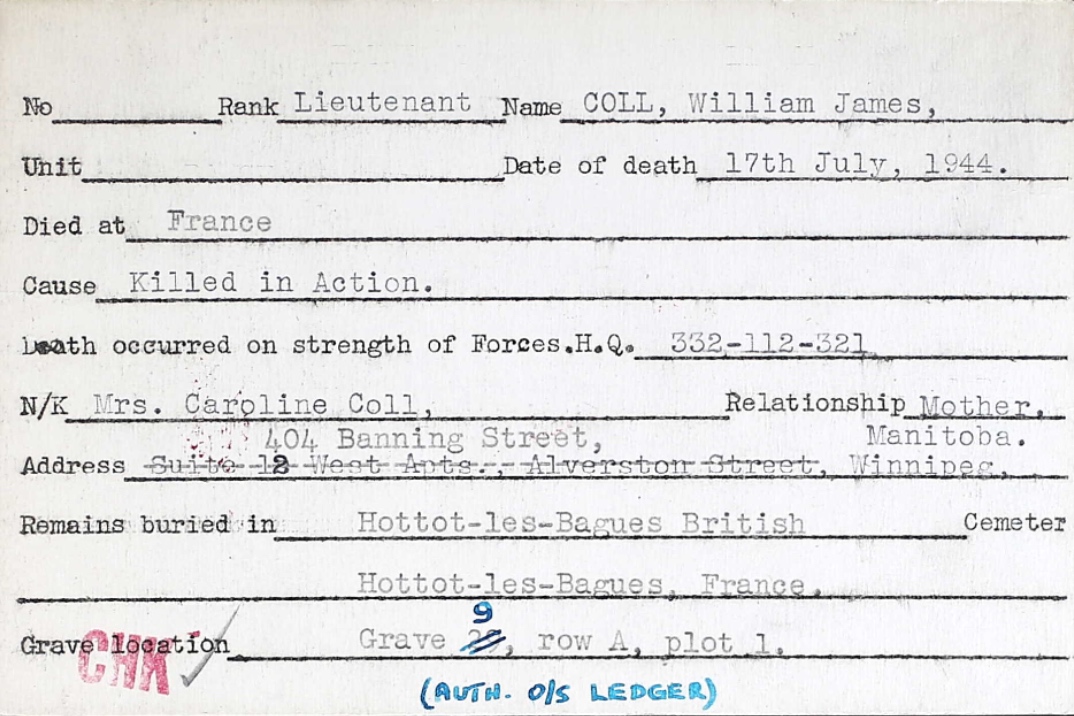 No Rank Lieutenant Name COLL, William James,
Unit Date of death 17th July, 1944.
Died at France
Cause Killed in Action.
Death occurred on strength of Forces.H.Q. 332-112-321
N/K Mrs. Caroline Coll, Relationship Mother,
404 Banning Street, Manitoba.
Address Suite 12 West Apts., Alverston Street, Winnipeg,
Remains buried in Hottot-les-Bagues British Cemeter
Hottot-les-Bagues, France.
9
Grave location Grave , row A, plot 1.
CHK
(AUTH. O/S LEDGER)